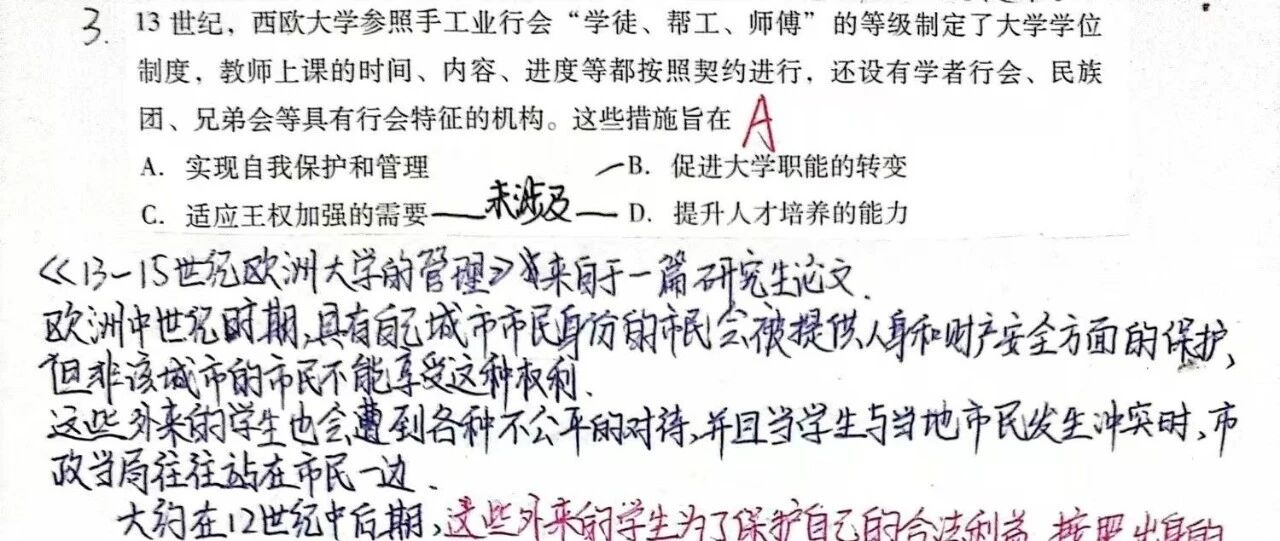 3. 13 世纪，西欧大学参照手工业行会“学徒、帮工、师傅”的等级制定了大学学位
制度，教师上课的时间、内容、进度等都按照契约进行，还设有学者行会、民族
团、兄弟会等具有行会特征的机构。这些措施旨在 A
A. 实现自我保护和管理 B. 促进大学职能的转变
C. 适应王权加强的需要 未涉及 D. 提升人才培养的能力
《13-15世纪欧洲大学的管理》来自于一篇研究生论文.
欧洲中世纪时期,具有自己城市市民身份的市民会被提供人身和财产安全方面的保护,
但非该城市的市民不能享受这种权利.
这些外来的学生也会遭到各种不公平的对待,并且当学生与当地市民发生冲突时,市
政当局往往站在市民一边.
大约在12世纪中后期,这些外来的学生为了保护自己的合法利益 按照出身的